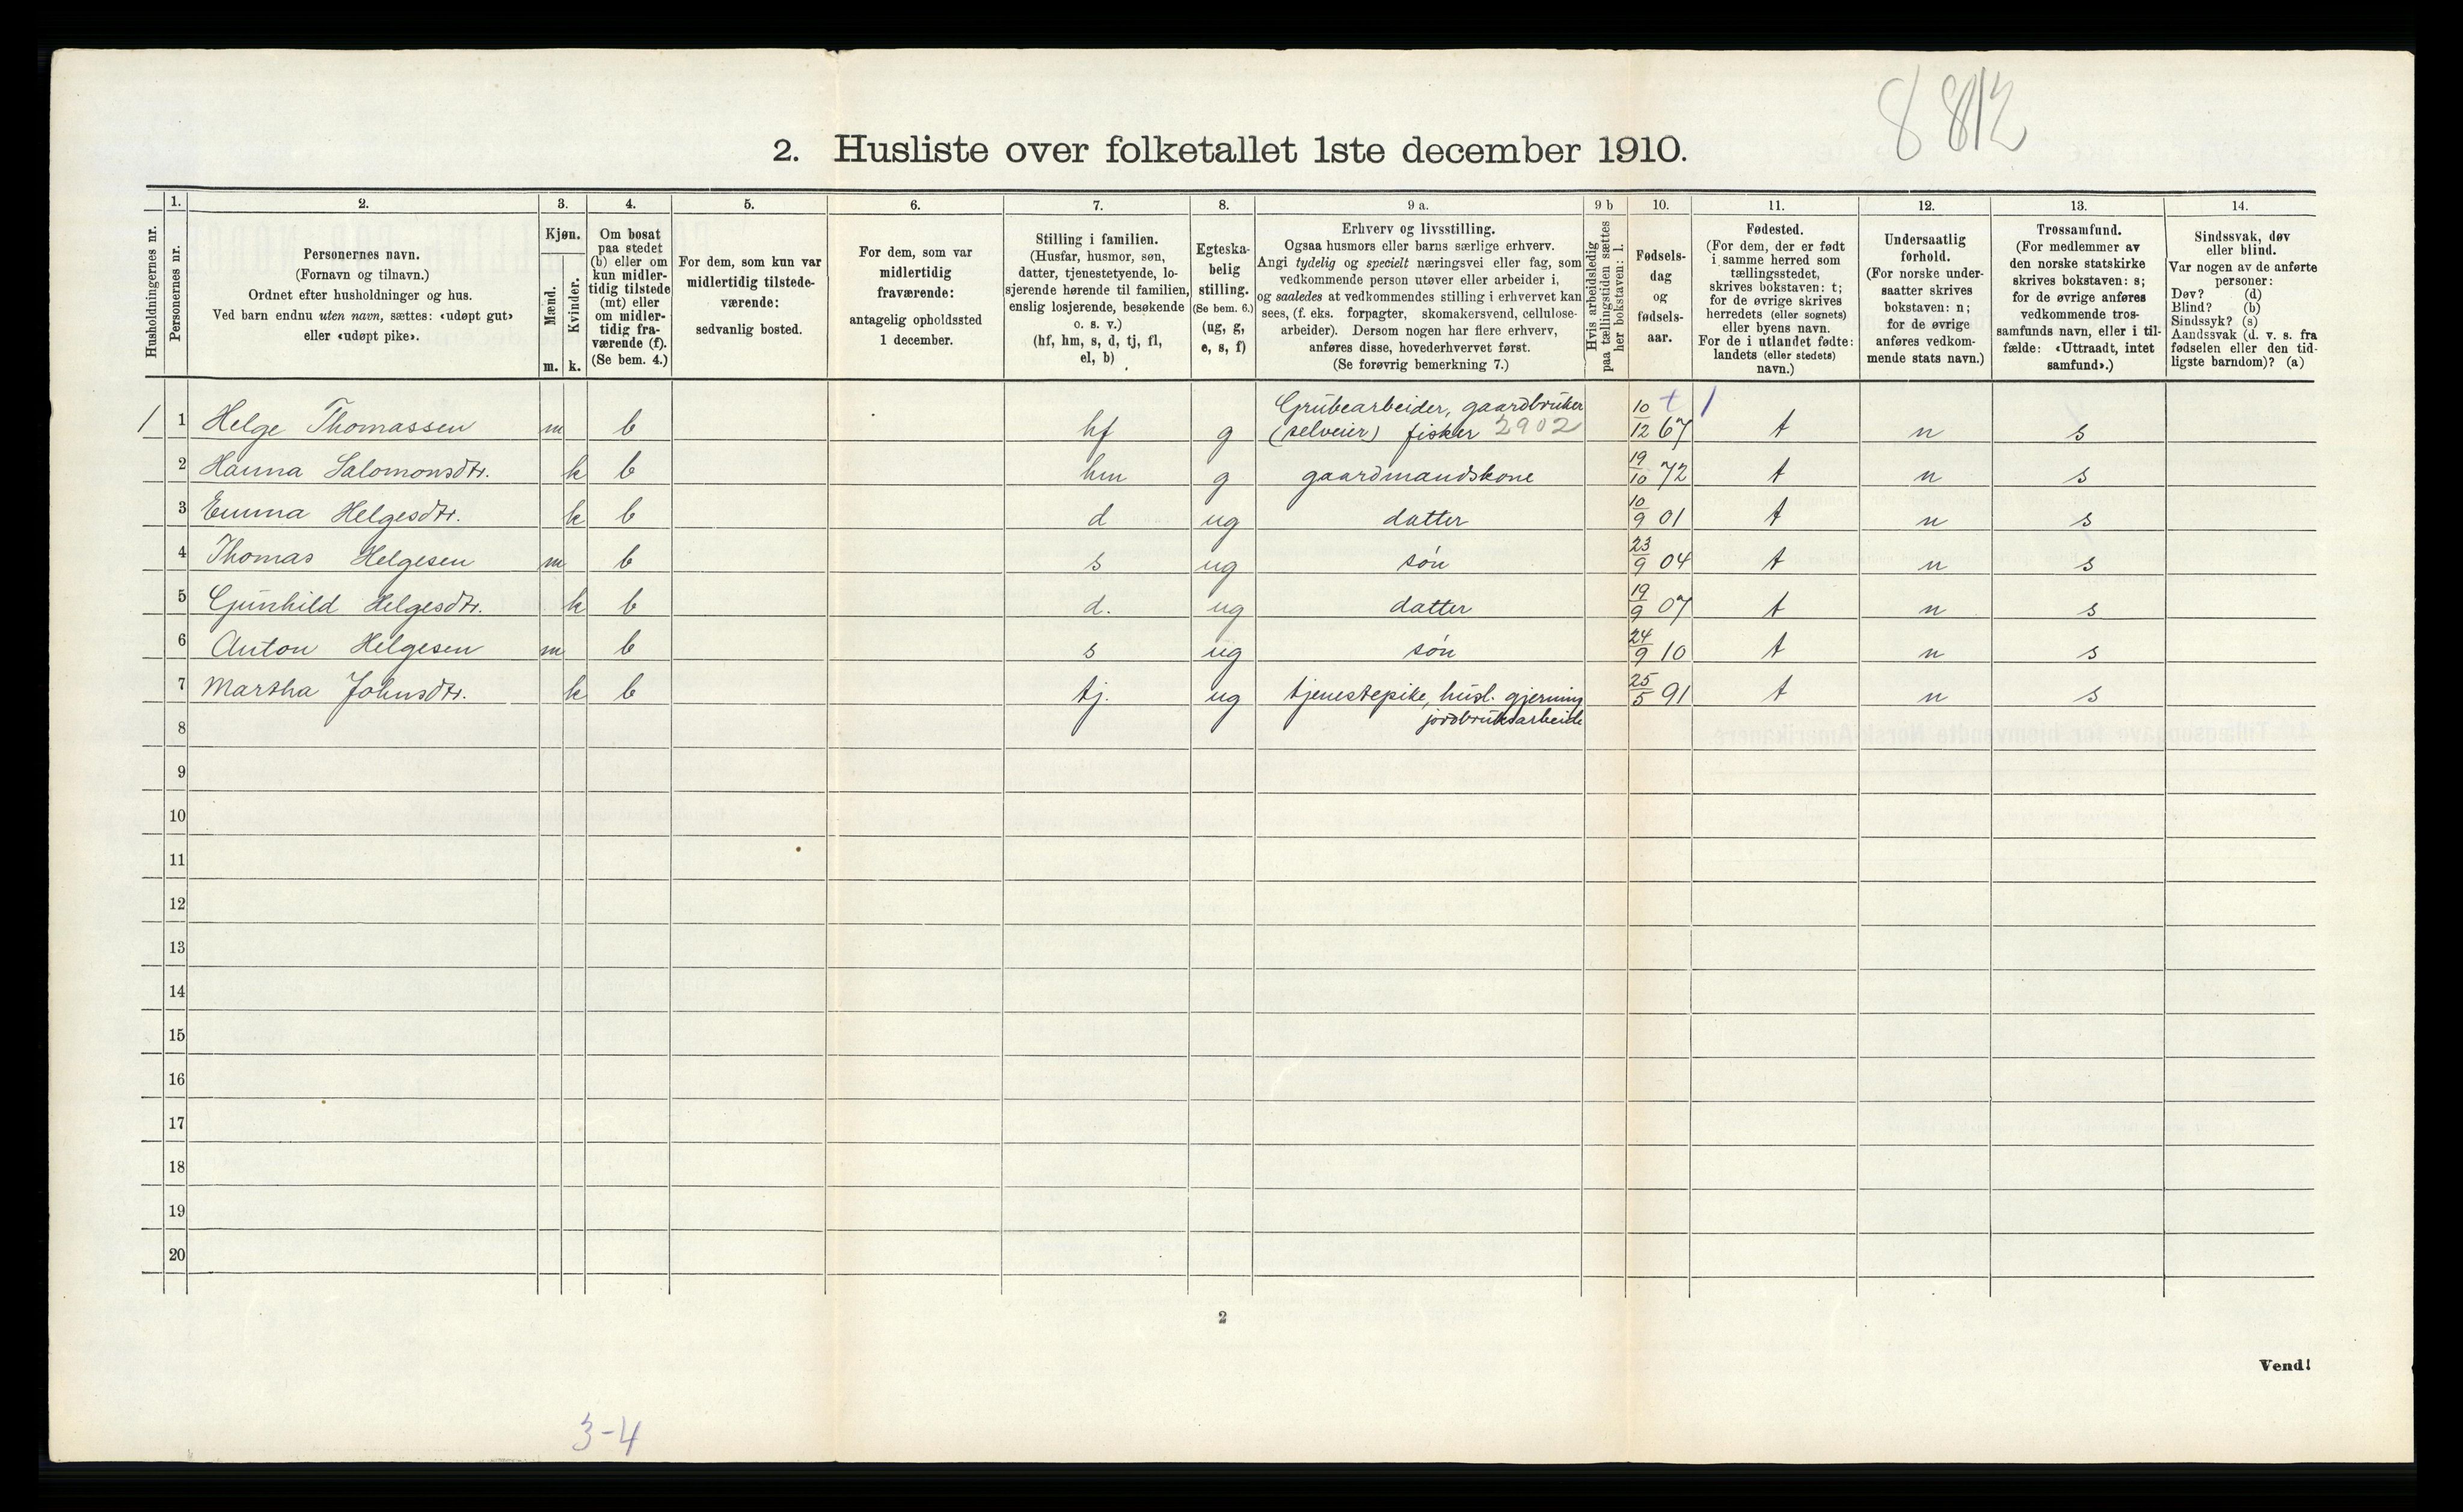 8 812
2. Husliste over folketallet 1ste december 1910.
Husholdningernes nr.
1. Personernes nr.
2. Personernes navn. (Fornavn og tilnavn.) Ordnet efter husholdninger og hus. Ved barn endnu uten navn, sættes: «udøpt gut» eller «udøpt pike».
3. Kjøn. Mænd. m. Kvinder. k.
4. Om bosat paa stedet (b) eller om kun midlertidig tilstede (mt) eller om midlertidig fraværende (f). (Se bem. 4.)
5. For dem, som kun var midlertidig tilstedeværende: sedvanlig bosted.
6. For dem, som var midlertidig fraværende: antagelig opholdssted 1 december.
7. Stilling i familien. (Husfar, husmor, søn, datter, tjenestetyende, losjerende hørende til familien, enslig losjerende, besøkende o. s. v.) (hf, hm, s, d, tj, fl, el, b)
8. Egteskabelig stilling. (Se bem. 6.) (ug, g, e, s, f)
9 a. Erhverv og livsstilling. Ogsaa husmors eller barns særlige erhverv. Angi tydelig og specielt næringsvei eller fag, som vedkommende person utøver eller arbeider i, og saaledes at vedkommendes stilling i erhvervet kan sees, (f. eks. forpagter, skomakersvend, cellulosearbeider). Dersom nogen har flere erhverv, anføres disse, hovederhvervet først. (Se forøvrig bemerkning 7.)
9 b Hvis arbeidsledig paa tællingstiden sættes her bokstaven: l.
10. Fødselsdag og fødselsaar.
11. Fødested. (For dem, der er født i samme herred som tællingsstedet, skrives bokstaven: t; for de øvrige skrives herredets (eller sognets) eller byens navn. For de i utlandet fødte: landets (eller stedets) navn.)
12. Undersaatlig forhold. (For norske undersaatter skrives bokstaven: n; for de øvrige anføres vedkommende stats navn.)
13. Trossamfund. (For medlemmer av den norske statskirke skrives bokstaven: s; for de øvrige anføres vedkommende trossamfunds navn, eller i tilfælde: «Uttraadt, intet samfund».)
14. Sindssvak, døv eller blind. Var nogen av de anførte personer: Døv? (d) Blind? (b) Sindssyk? (s) Aandssvak (d. v. s. fra fødselen eller den tidligste barndom)? (a)
1 1 Helge Thomassen m b hf g Grubearbeider, gaardbruker (selveier) fisker 2902 10/12 67 t 1 t n s
2 Hanna Salomonsdtr. k b hm g gaardmandskone 19/10 72 t n s
3 Emma Helgesdtr. k b d ug datter 10/9 01 t n s
4 Thomas Helgesen m b s ug søn 23/9 04 t n s
5 Gunhild Helgesdtr. k b d. ug datter 19/9 07 t n s
6 Anton Helgesen m b s ug søn 24/9 10 t n s
7 Martha Johnsdtr. k b tj. ug tjenestepike, husl. gjerning jordbruksarbeide 25/5 91 t n s
8
9
10
11
12
13
14
15
16
17
18
19
20
2
Vend!
3-4